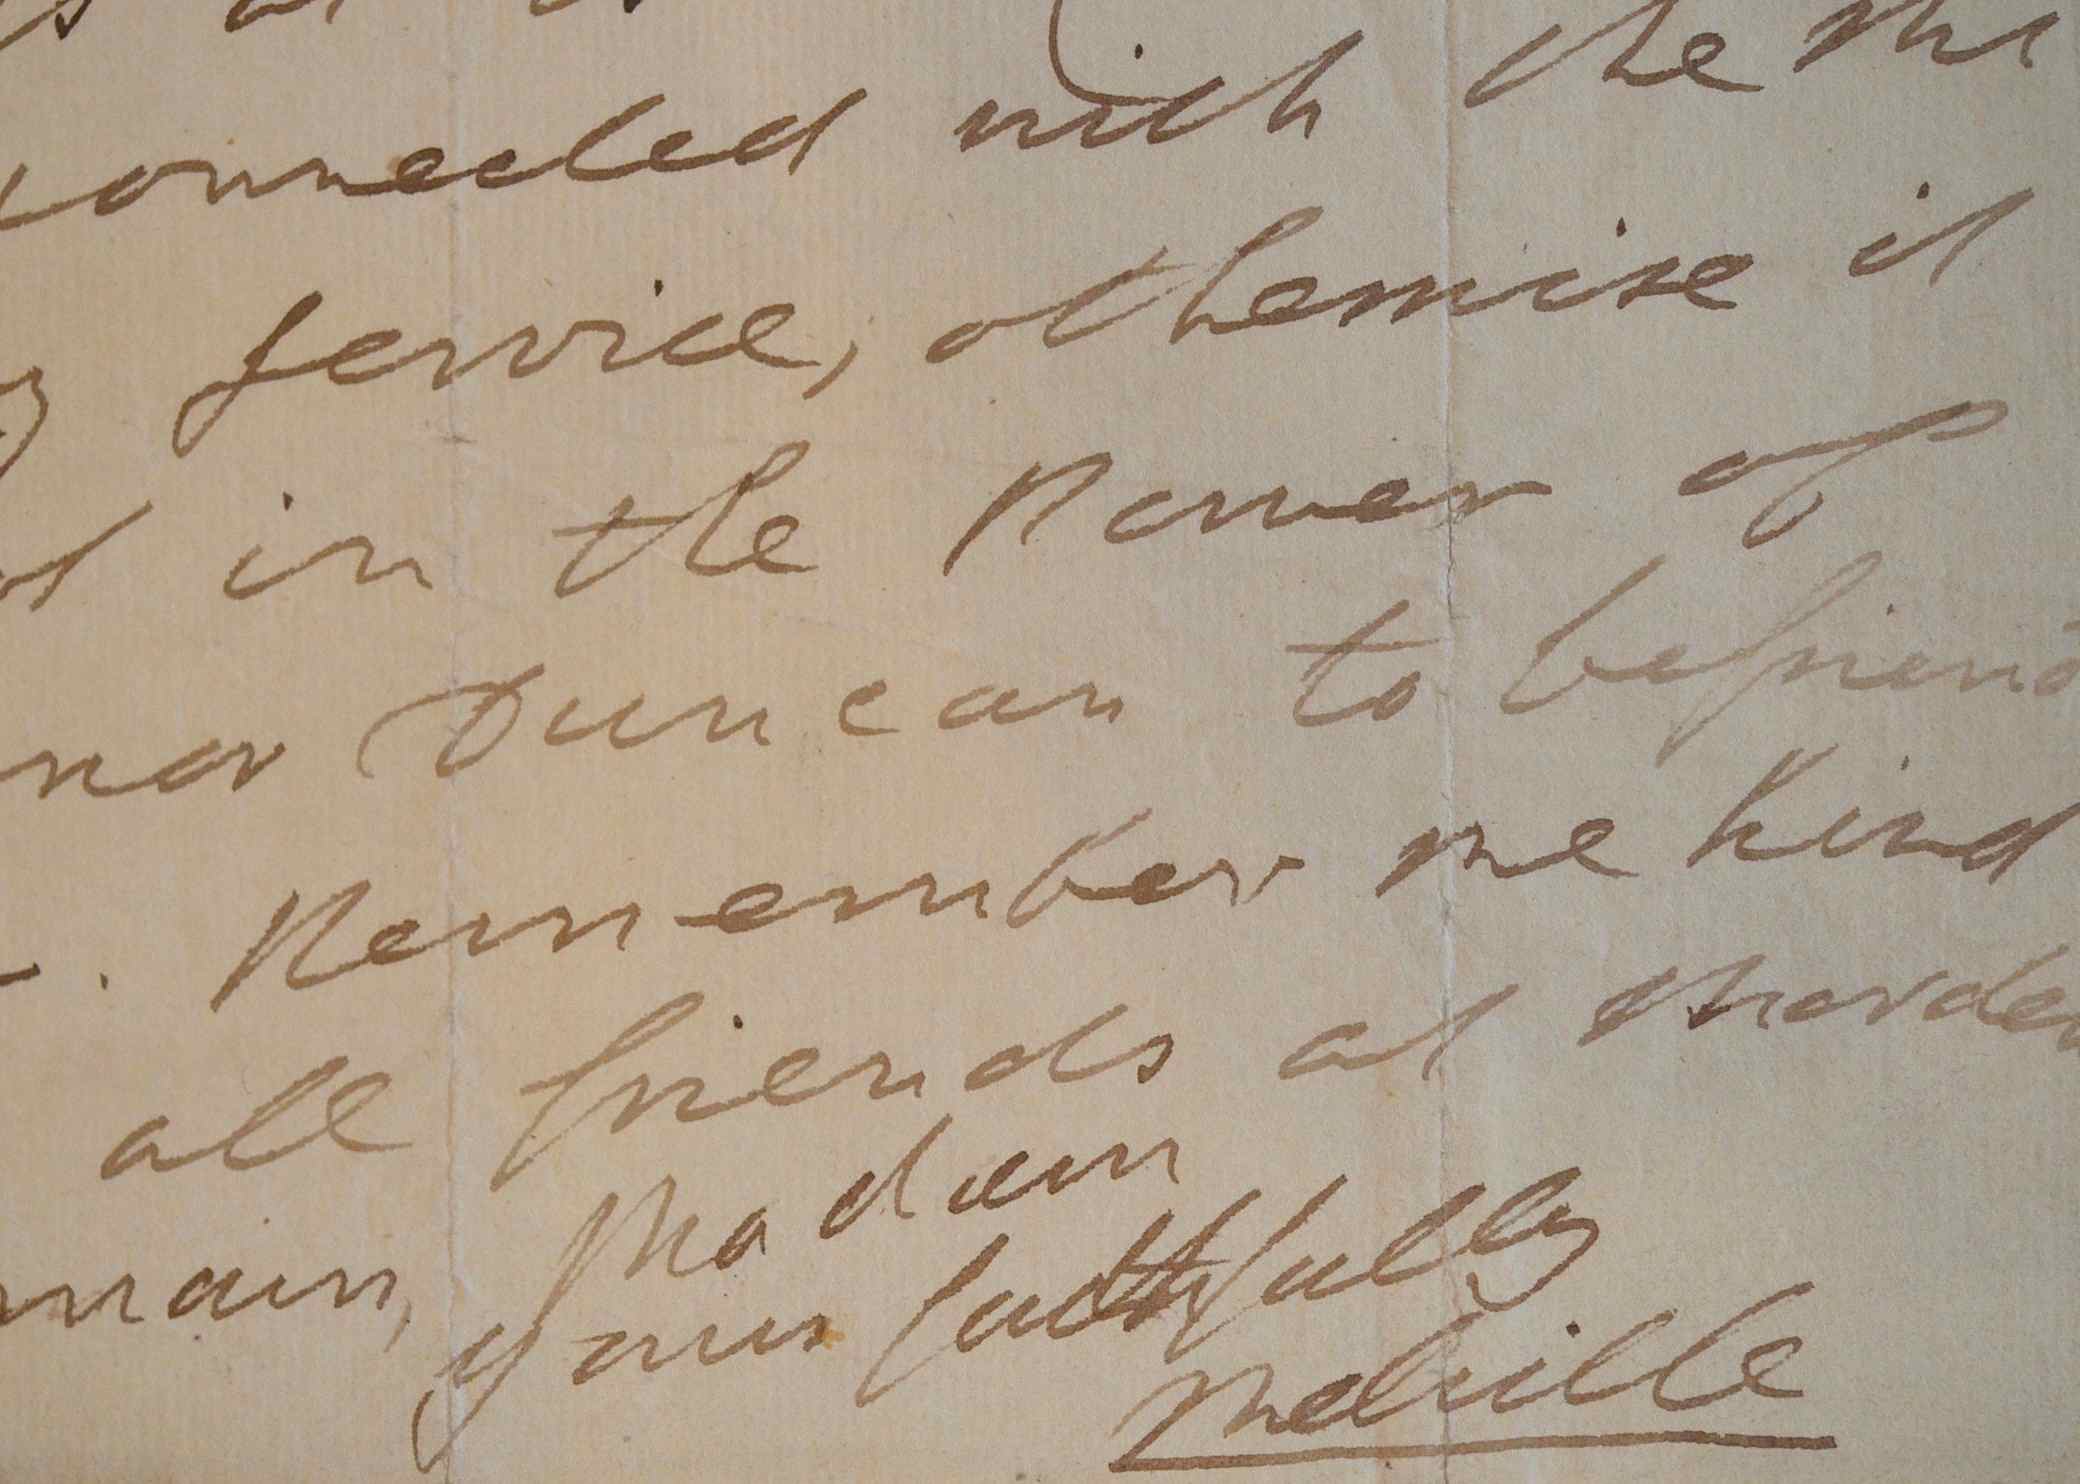 connected with the Mi
y Service, otherwise it
t in the Power of
nor Duncan to befriend
. Remember me kind
all friends at Morden
main, Madam
yours faithfully
Melville